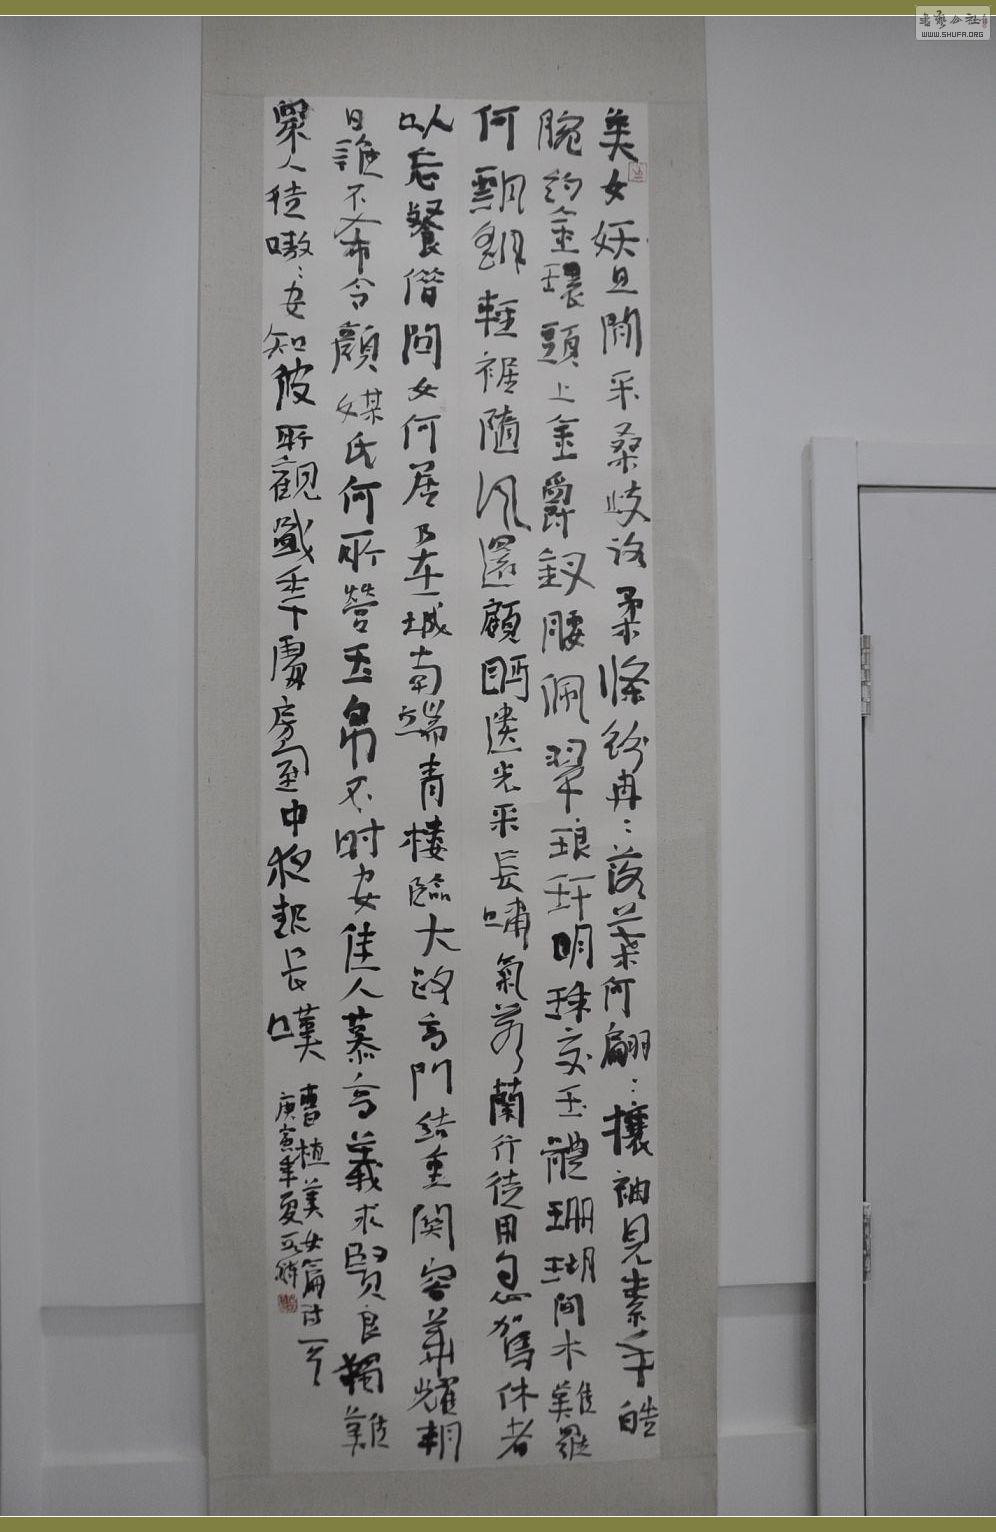 美女妖且閒采桑歧路柔條紛冉〻落葉何翩〻攘袖見素手皓
腕約金環頭上金爵釵腰佩翠琅玕明珠交玉體珊瑚間木難羅
何飄飖輕裾隨風還顧眄遺光采長嘯氣若蘭行徒用息駕休者
以忘餐借問女何居乃在城南端青樓臨大路高門結重關容華耀朝
日誰不希令顏媒氏何所營玉帛不时安佳人慕高義求賢良獨難
眾人徒嗷〻安知彼所觀盛年處房室中夜起長嘆
曹植美女篇詩一首
庚寅年夏
书艺公社
WWW.SHUFA.ORG